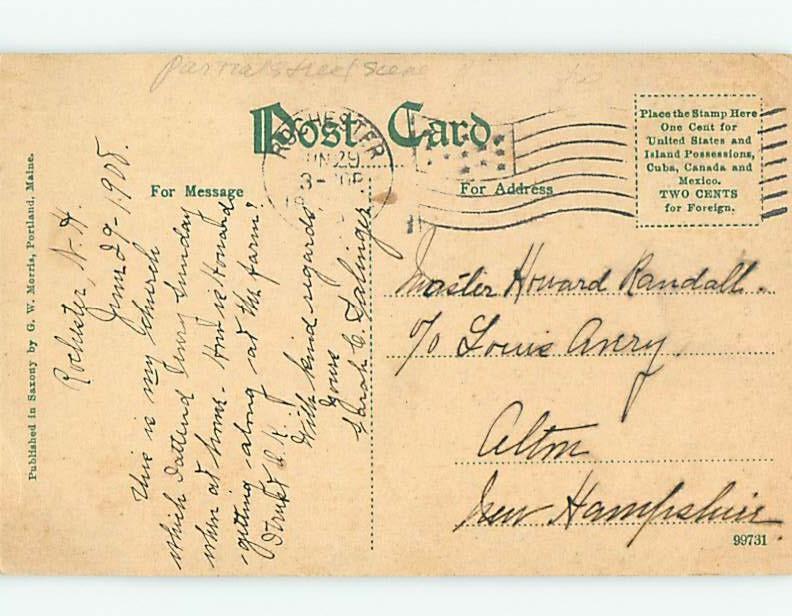 Partial street scene
Post Card.
ROCHESTER
JUN 29
For Message
For Address
Place the Stamp Here
One Cent for
United States and
Island Possessions,
Cuba, Canada and
Mexico.
TWO CENTS
for Foreign.
Published in Saxony by G. W. Morris, Portland, Maine.
Rochester, N. H.
June 29-1908.
This is my church
which I attend every Sunday
when at home. How is Howard
getting along at the farm?
O.K.?
With kind regards,
Yours
Sarah C.
Master Howard Randall.
c/o Louis Avery.
Alton
New Hampshire.
99731